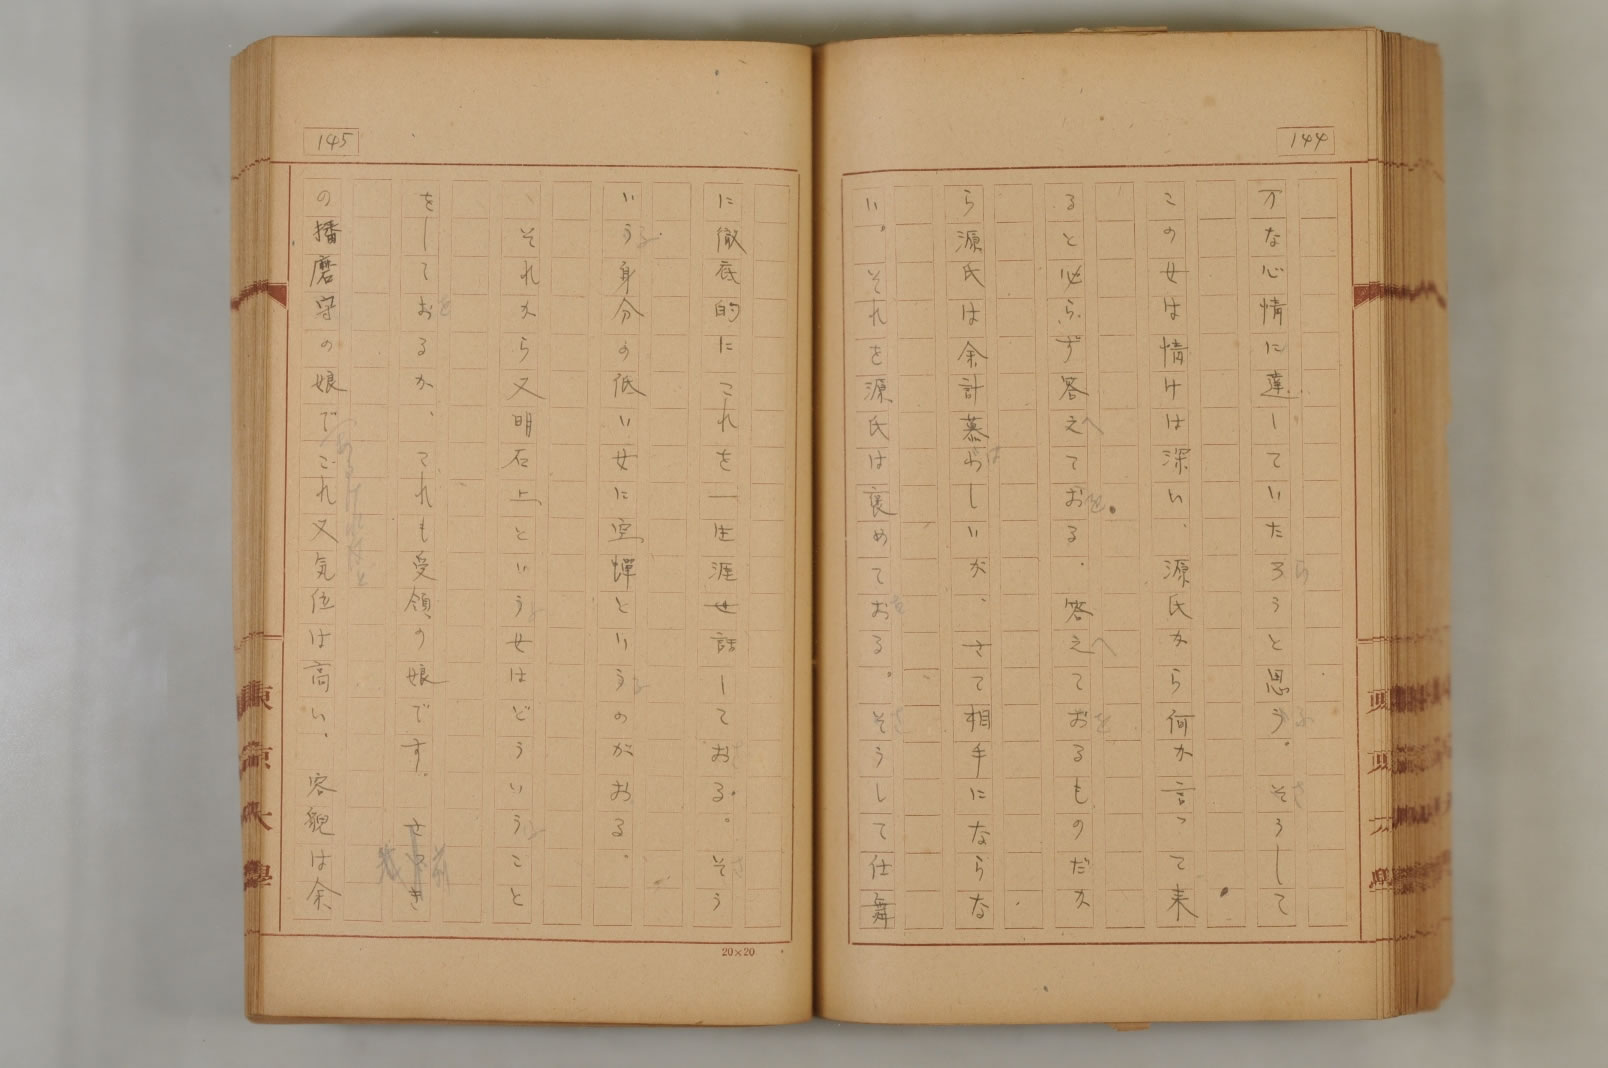 144
方な心情に達していたろうと思う。そうして
この女は情けは深い、源氏から何か言って来
ると必らず答えておる。答えておるものだか
ら源氏は余計慕わしいが、さて相手にならな
い。それを源氏は褒めておる。そうして仕舞
145
に徹底的にこれを一生涯世話しておる。そう
いう身分の低い女に空蟬というのがおる。
、それから又明石上という女はどういうこと
をしておるか、これも受領の娘です。さっき
の播磨守の娘でこれ又気位は高い、容貌は余
20×20